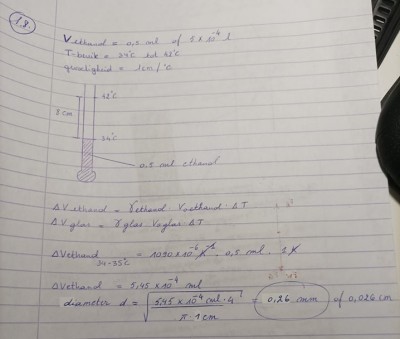 1.8
V ethanol = 0,5 ml of 5 x 10⁻⁴ l
T-bereik = 34°C tot 42°C
gevoeligheid = 1cm/°C
42°C
8 cm
34°C
0.5 ml ethanol
ΔV ethanol = γ ethanol V₀ ethanol · ΔT
ΔV glas = γ glas V₀ glas · ΔT
ΔV ethanol 34-35°C = 1090 x 10⁻⁶ K⁻¹ · 0,5 ml · 1 K
ΔV ethanol = 5,45 x 10⁻⁴ ml
diameter d = √ 5,45 x 10⁻⁴ ml · 4 / π · 1 cm = 0,26 mm of 0,026 cm